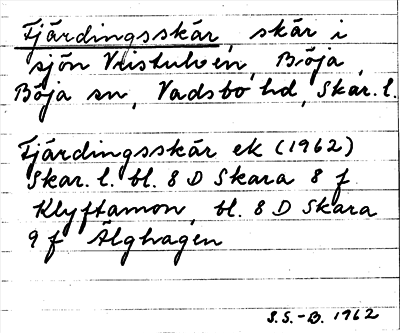 Fjärdingsskär, skär i
sjön Vristulven, Böja,
Böja sn, Vadsbo hd, Skar. l.
Fjärdingsskär ek (1962)
Skar. l. bl. 8 D Skara 8 f
Klyftamon, bl. 8 D Skara
9 f Älghagen
S.S.-B. 1962